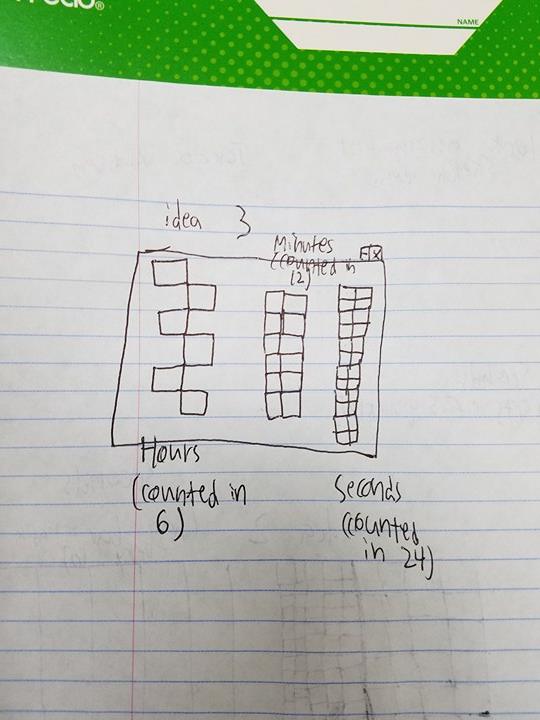 NAME
idea 3
Minutes
(counted in
12)
X
Hours
(counted in
6)
Seconds
(counted
in 24)